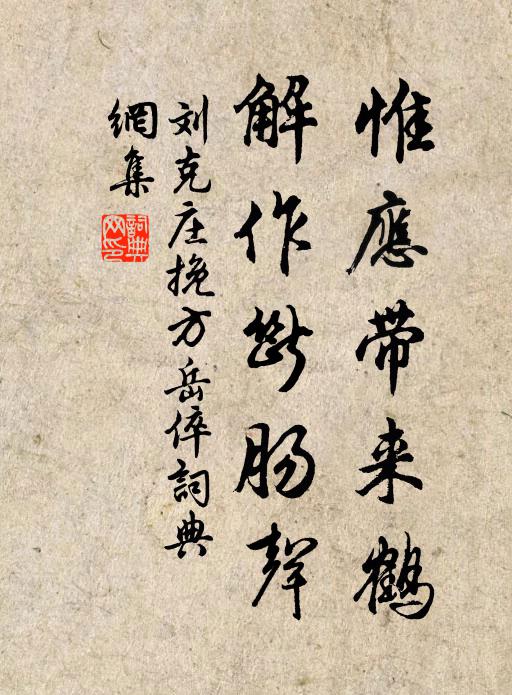 惟應帶来鶴
解作斷肠聲
刘克庄挽方岳倅詞典
網集
詞典網印